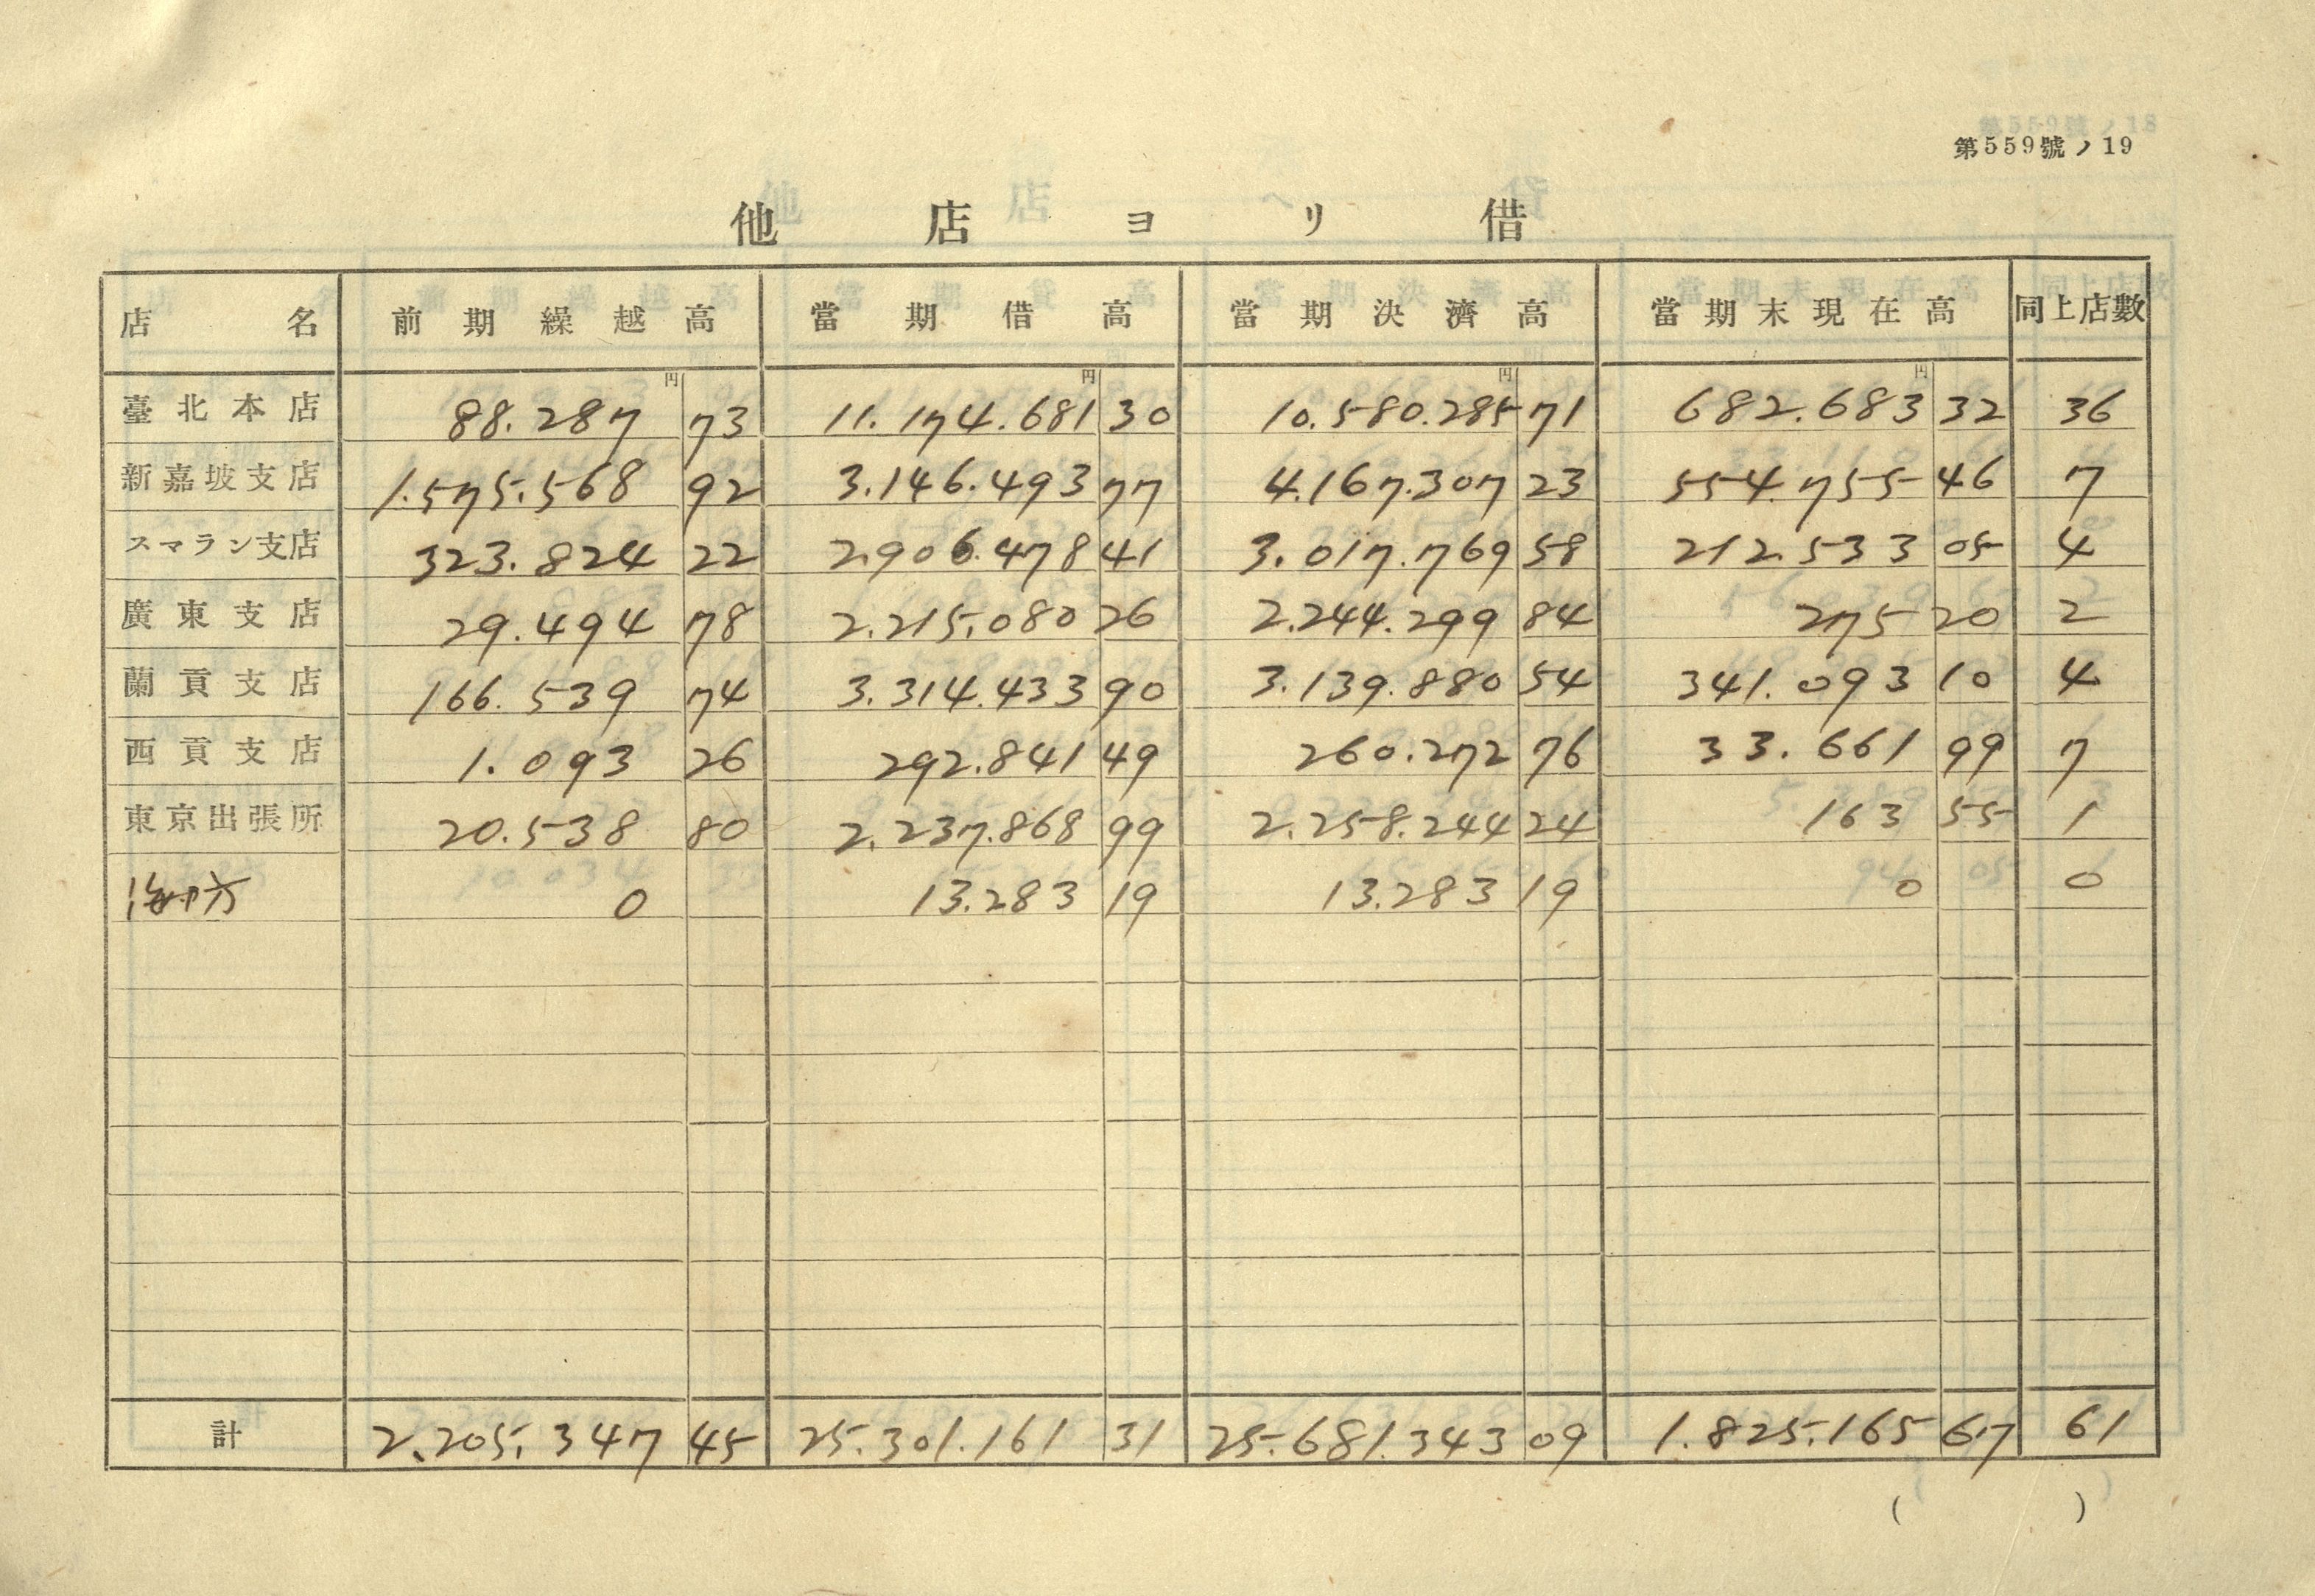 第559號ノ19
他店ヨリ借
店名 前期繰越高 當期借高 當期決濟高 當期末現在高 同上店數
円 円 円 円
臺北本店 88.287 73 11.174.681 30 10.580.285 71 682.683 32 36
新嘉坡支店 1.575.568 92 3.146.493 77 4.167.307 23 554.755 46 7
スマラン支店 323.824 22 2.906.478 41 3.017.769 58 212.533 05 4
廣東支店 29.494 78 2.215.080 26 2.244.299 84 275 20 2
蘭貢支店 166.539 74 3.314.433 90 3.139.880 54 341.093 10 4
西貢支店 1.093 26 292.841 49 260.272 76 33.661 99 7
東京出張所 20.538 80 2.237.868 99 2.258.244 24 163 55 1
海防 0 13.283 19 13.283 19 0 0
計 2.205.347 45 25.301.161 31 25.681.343 09 1.825.165 67 61
( )